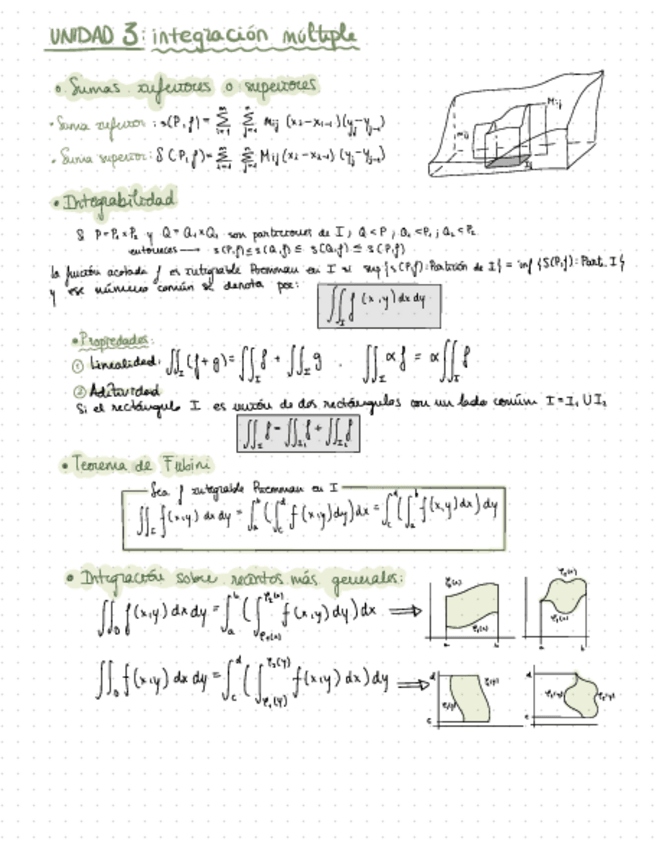 UNIDAD 3: integración múltiple
• Sumas inferiores o superiores
• Suma inferior: s(P,f) = Σ_{i=1}^{n} Σ_{j=1}^{n} m_ij (x_i - x_{i-1})(y_j - y_{j-1})
• Suma superior: S(P,f) = Σ_{i=1}^{n} Σ_{j=1}^{n} M_ij (x_i - x_{i-1})(y_j - y_{j-1})
M_ij
m_ij
• Integrabilidad
Si P = P₁×P₂ y Q = Q₁×Q₂ son particiones de I; Q < P; Q₁ < P₁; Q₂ < P₂
entonces → s(P,f) ≤ s(Q,f) ≤ S(Q,f) ≤ S(P,f)
la función acotada f es integrable Riemman en I si sup{s(P,f): Partición de I} = inf{S(P,f): Part. I}
y ese número común se denota por:
∬_I f(x,y) dx dy
• Propiedades:
① Linealidad: ∬_I (f+g) = ∬_I f + ∬_I g . ∬_I αf = α∬_I f
② Aditividad
Si el rectángulo I es unión de dos rectángulos con un lado común I = I₁ ∪ I₂
∬_I f = ∬_{I₁} f + ∬_{I₂} f
• Teorema de Fubini
Sea f integrable Riemman en I
∬_I f(x,y) dx dy = ∫_a^b (∫_c^d f(x,y) dy) dx = ∫_c^d (∫_a^b f(x,y) dx) dy
• Integración sobre recintos más generales:
∬_D f(x,y) dx dy = ∫_a^b (∫_{φ₁(x)}^{φ₂(x)} f(x,y) dy) dx ⟹
φ₂(x) φ₁(x) a b
φ₂(x) φ₁(x) a b
∬_D f(x,y) dx dy = ∫_c^d (∫_{φ₁(y)}^{φ₂(y)} f(x,y) dx) dy ⟹
d φ₁(y) φ₂(y) c
d φ₁(y) φ₂(y) c